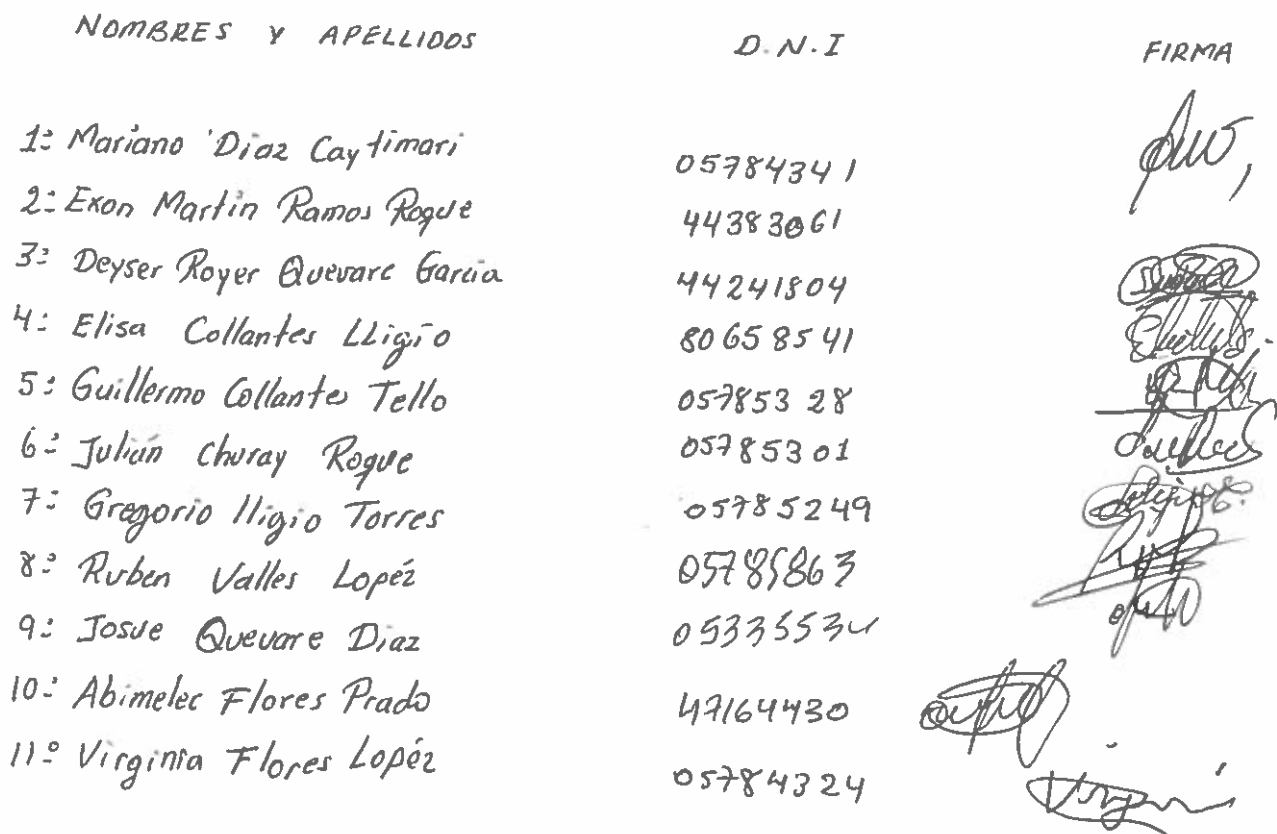 NOMBRES Y APELLIDOS D.N.I FIRMA
1º Mariano Diaz Caytimari 05784341
2º Exon Martin Ramos Roque 44383061
3º Deyser Royer Quevare Garcia 44241804
4º Elisa Collantes LLigio 80658541
5º Guillermo Collantes Tello 05785328
6º Julián Churay Roque 05785301
7º Gregorio lligio Torres 05785249
8º Ruben Valles Lopéz 05785863
9º Josue Quevare Diaz
10º Abimelec Flores Prado 47164430
11º Virginia Flores Lopéz 05784324